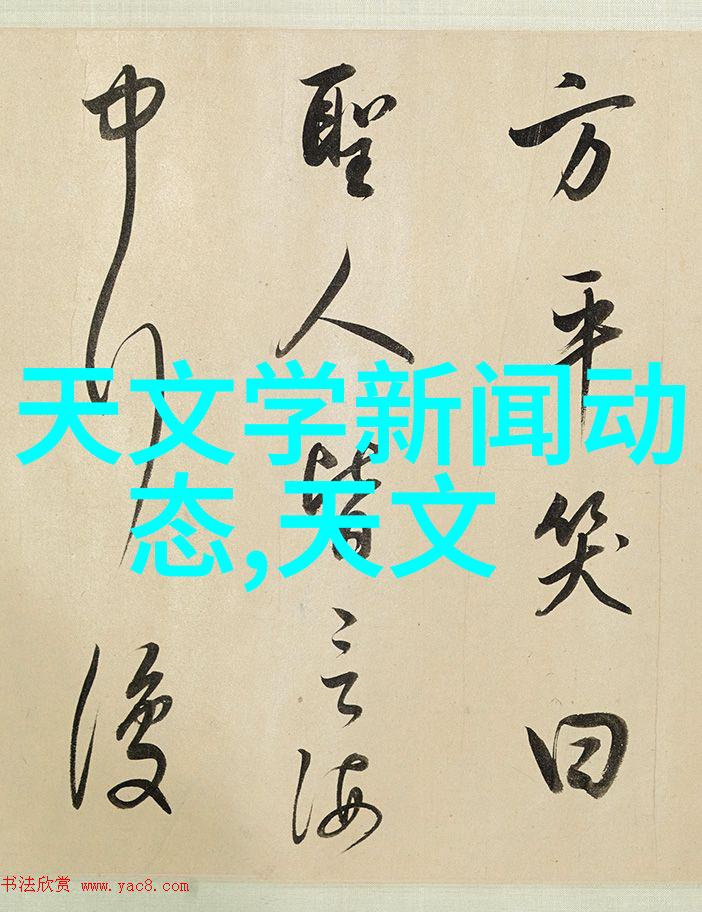 方平笑曰
聖人皆言海
中行復
天文学新闻动
态,天文
书法欣赏 www.yac8.com